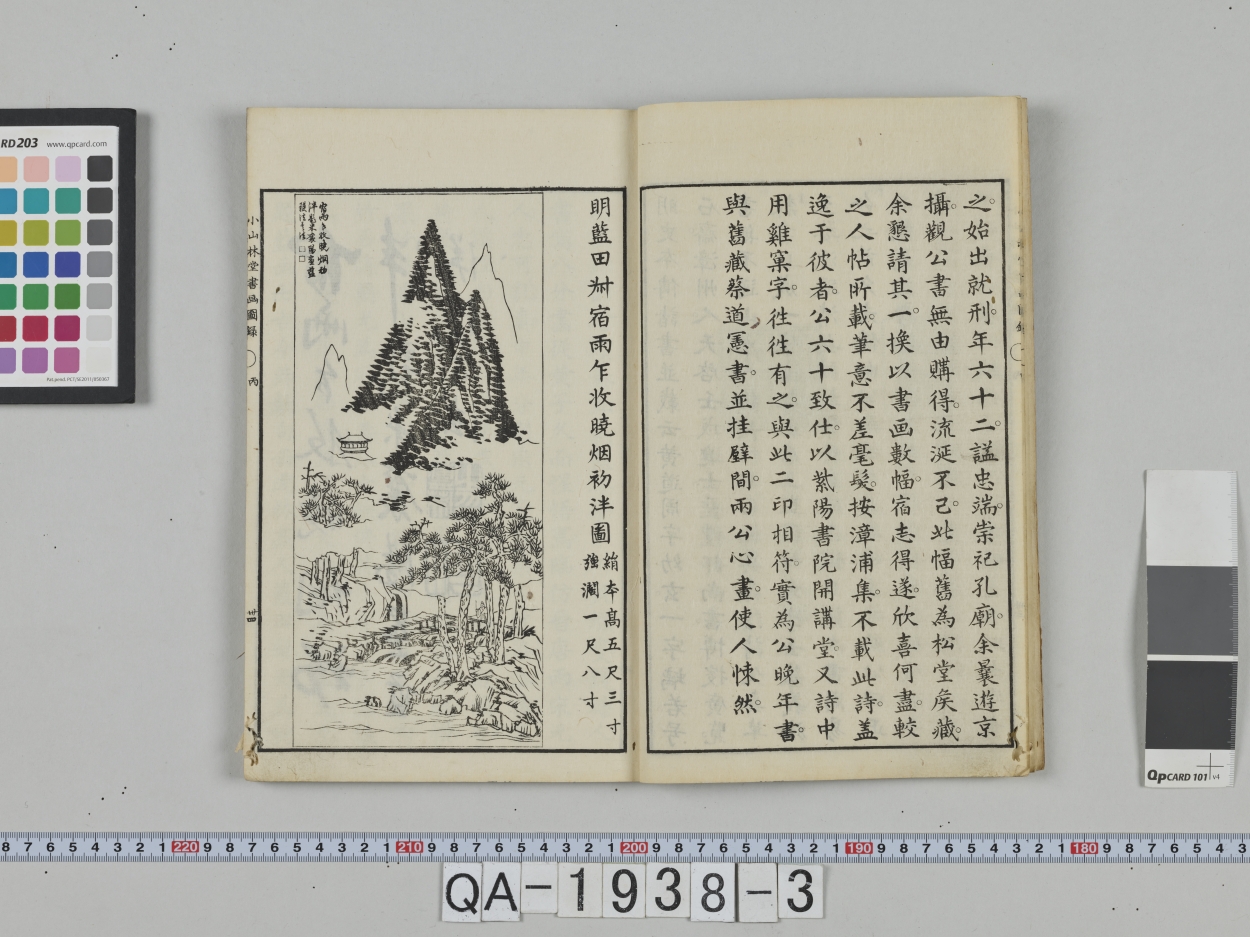 之始出就刑年六十二諡忠端崇祀孔廟余曩遊京
攝觀公書無由購得流涎不已此幅舊為松堂矦藏
余懇請其一換以書画數幅宿志得遂欣喜何盡較
之人帖所載筆意不差毫髮按漳浦集不載此詩盖
逸于彼者公六十致仕以紫陽書院開講堂又詩中
用雞窠字徃徃有之與此二印相符實為公晚年書
與舊藏蔡道憲書並挂壁間兩公心畫使人悚然
明藍田叔宿雨乍收曉烟初泮圖
絹本髙五尺三寸
強濶一尺八寸
小山林堂書画圖録
丙
卅四
RD203 www.qpcard.com
QPCARD 101 v4
8 7 6 5 4 3 2 1 220 9 8 7 6 5 4 3 2 1 210 9 8 7 6 5 4 3 2 1 200 9 8 7 6 5 4 3 2 1 190 9 8 7 6 5 4 3 2 1 180 9 8 7 6 5 4 3
QA-1938-3